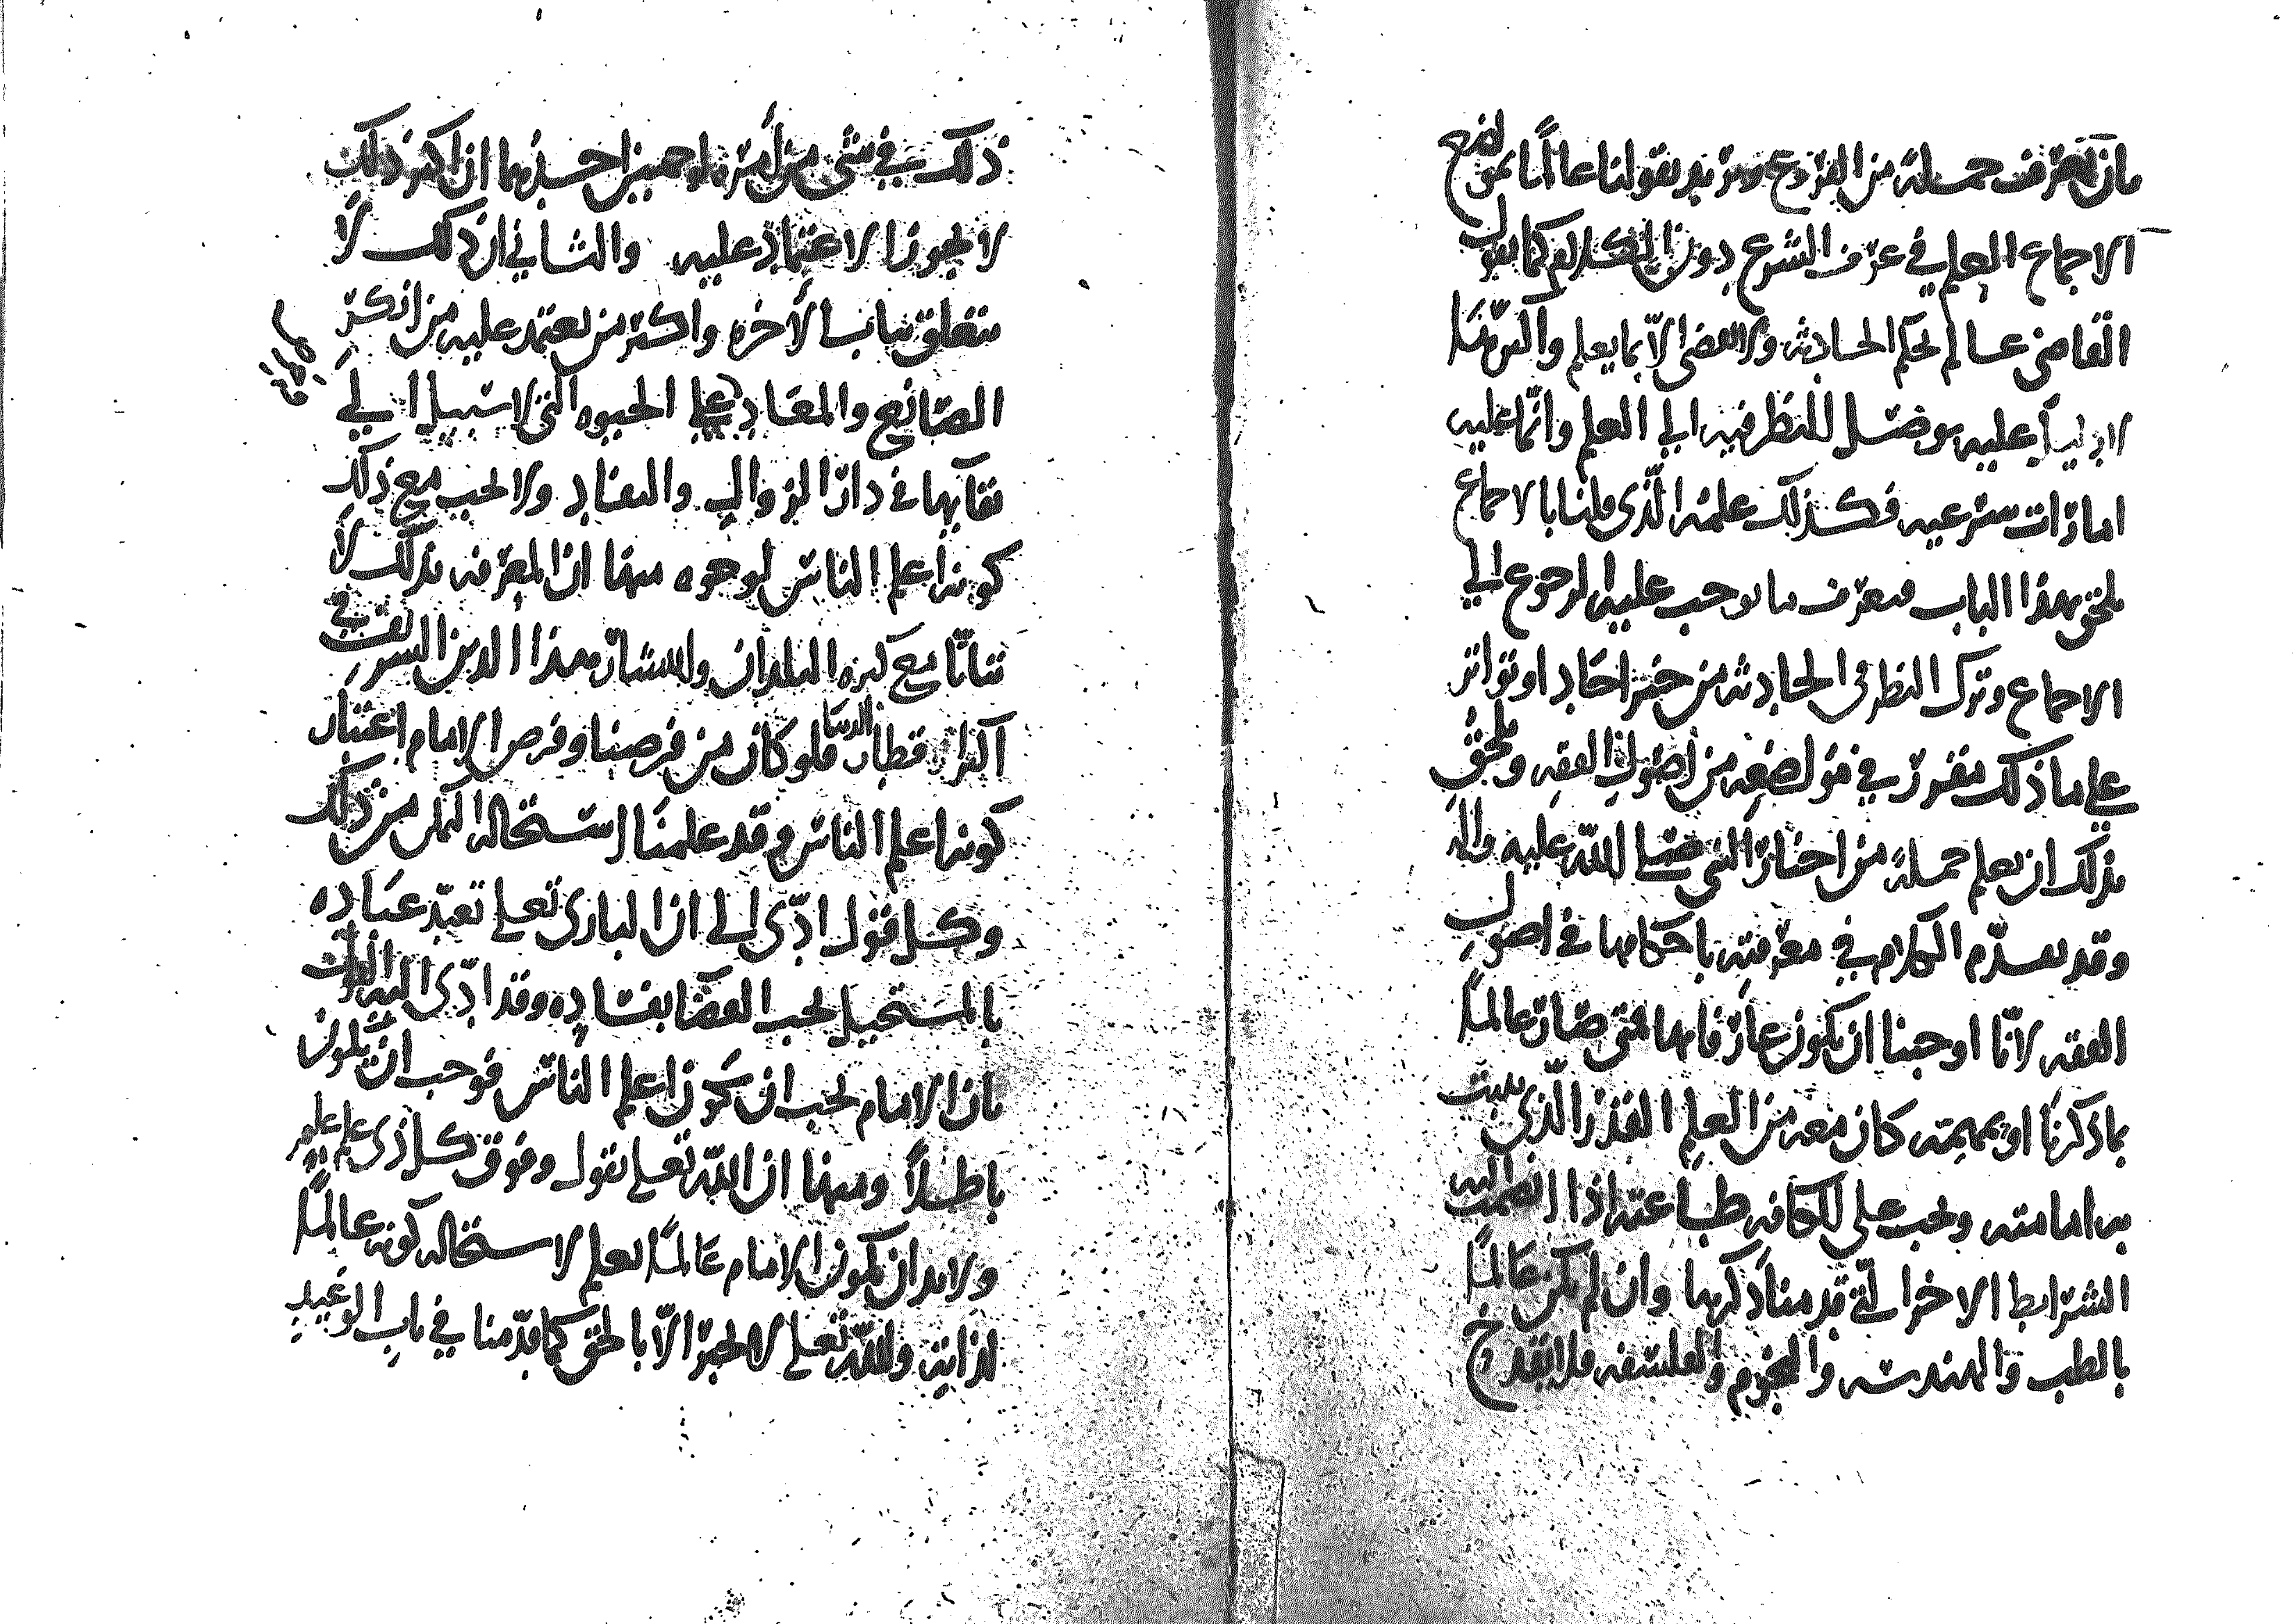 بان تعرف جملة من الفروع ونريد بقولنا عالما بمواضع
الاجماع العلم في عرف الشرع دون الكلام كما نقول
القاضي عالم بحكم الحادثة ولا يقضي الا بما يعلم واكثرها
لا دليل عليه يوصل للنظر فيه الى العلم وانما عليه
امارات شرعية فكذلك علمه الذي قلنا بالاجماع
يلحق بهذا الباب فيعرف ما يوجب عليه الرجوع الى
الاجماع وترك النظر في الحادثة من خبر احاد او تواتر
على ما ذلك مقرر في موضعه من اصول الفقه ويلحق
بذلك ان يعلم جملة من اخبار النبي صلى الله عليه واله
وقد تقدم الكلام في معرفته باحكامها في اصول
الفقه لانا اوجبنا ان يكون عارفا بها فمتى صار عالما
بما ذكرنا او بمعظمه كان معه من العلم القدر الذي تثبت
به امامته ويجب على الكافة طاعته اذا انضمت اليه
الشرايط الاخر التي قدمنا ذكرها وان لم يكن عالما
بالطب والهندسة والنجوم والفلسفة فلا يقدح
ذلك في شي من أمره لوجهين احدهما ان اكثر ذلك
لا يجوز الاعتماد عليه والثاني ان ذلك لا
يتعلق بباب الأخرة واكثر من يعتمد عليه من انكر
الصانع والمعاد الحيوة التي لا سبيل الى
بقآيها في دار الزوال والنفاد ولا يجب مع ذلك
كونه اعلم الناس لوجوه منها ان المعرفة بذلك لا
تتاتا مع كثرة البلدان وانتشار هذا الدين الشريف في
اكثر اقطار الدنيا فلو كان من فرضنا وفرض الامام اعتبار
كونه اعلم الناس وقد علمنا استحالة من ذلك
وكل قول ادّى الى ان الباري تعلى تعبّد عباده
بالمستحيل يجب القضا بفساده وقد ادّى اليه القول
بان الامام يجب ان يكون اعلم الناس فوجب ان يكون
باطلاً ومنها ان الله تعلى يقول وفوق كل ذي علم عليم
ولا بد ان يكون الامام عالما بعلم لاستحالة كونه عالماً
لذاته والله تعلى لا يخبر الّا بالحق كما قدّمنا في باب الوعيد